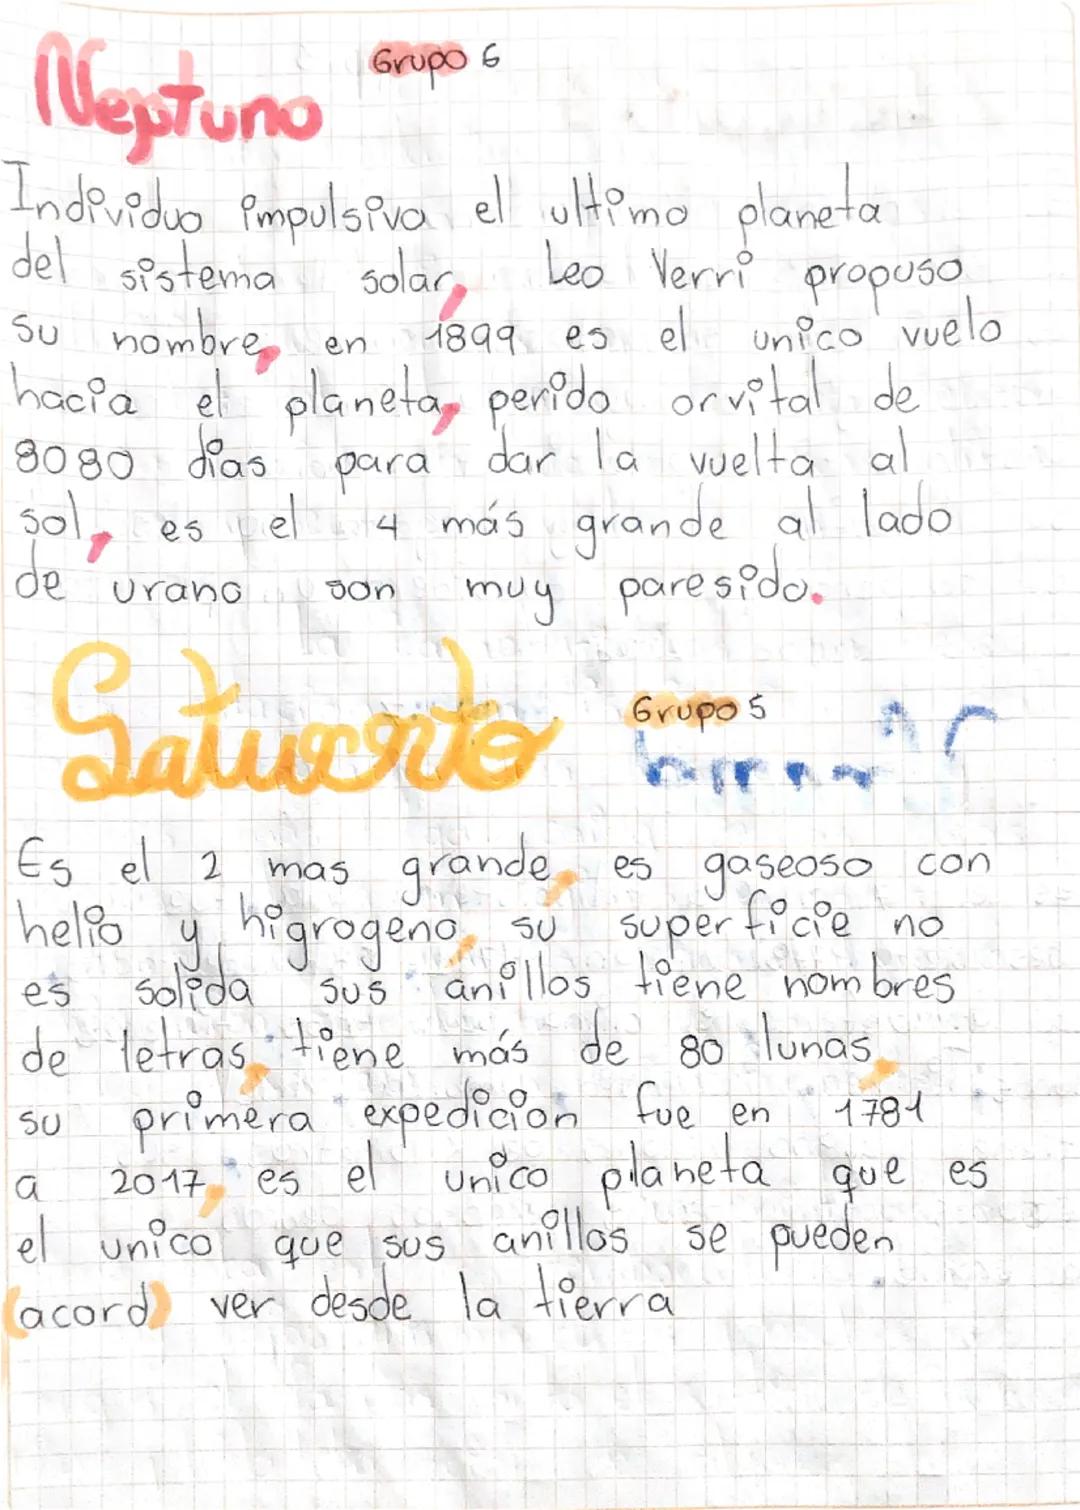 Neptuno Grupo 6
Individuo impulsiva el ultimo planeta
del sistema solar, Leo Verri propuso
su nombre, en 1899 es el unico vuelo
hacia el planeta, perido orvital de
8080 dias para dar la vuelta al
sol, es el 4 más grande al lado
de urano son muy paresido.
Grupo 5
Es el 2 mas grande, es gaseoso con
helio y higrogeno, su superficie no
es solida sus anillos tiene nombres
de letras, tiene más de 80 lunas,
su primera expedicion fue en 1781
a 2017, es el unico planeta que es
el unico que sus anillos se pueden
(acord) ver desde la tierra